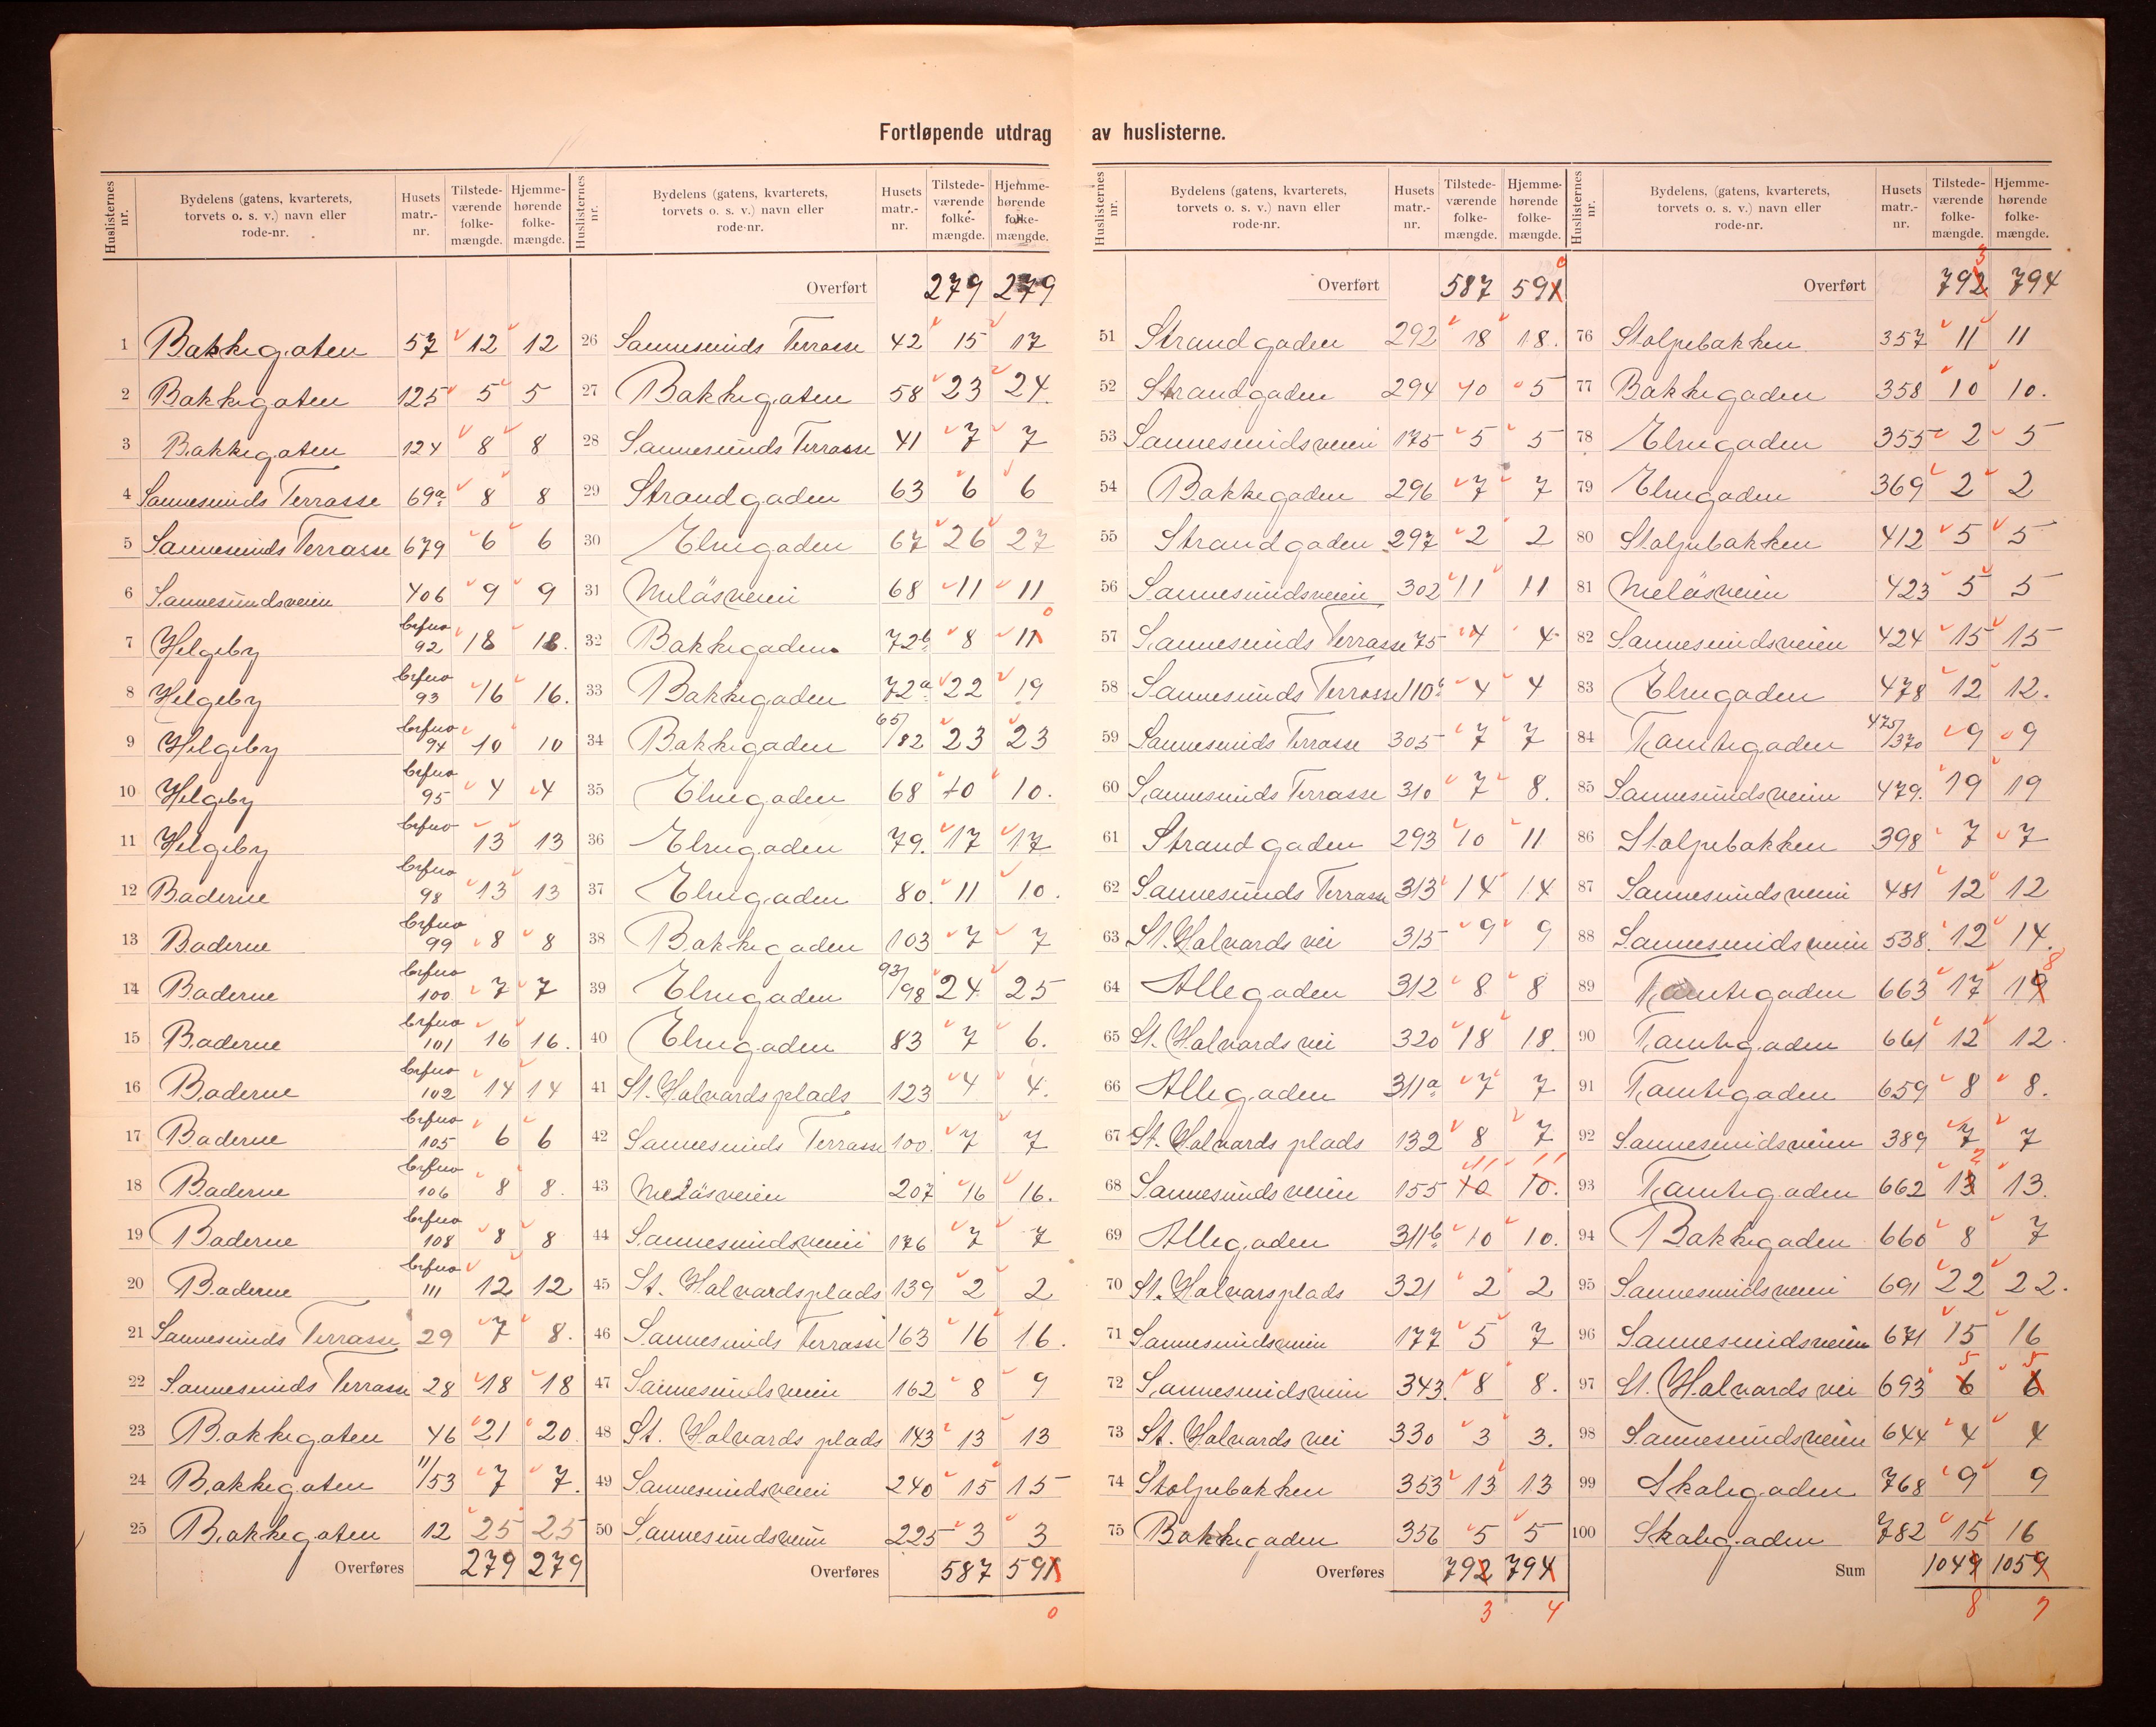 Fortløpende utdrag av huslisterne.
Huslisternes nr. | Bydelens (gatens, kvarterets, torvets o. s. v.) navn eller rode-nr. | Husets matr.-nr. | Tilstede-værende folke-mængde. | Hjemme-hørende folke-mængde.
1 Bakkegaten 57 12 12
2 Bakkegaten 125 5 5
3 Bakkegaten 124 8 8
4 Sannesunds Terrasse 69a 8 8
5 Sannesunds Terrasse 679 6 6
6 Sannesundsveien 406 9 9
7 Helgeby 92 18 18.
8 Helgeby 93 16 16.
9 Helgeby 94 10 10
10 Helgeby 95 4 4
11 Helgeby 13 13
12 Baderne 98 13 13
13 Baderne 99 8 8
14 Baderne 100 7 7
15 Baderne 101 16 16.
16 Baderne 102 14 14
17 Baderne 105 6 6
18 Baderne 106 8 8.
19 Baderne 108 8 8
20 Baderne 111 12 12
21 Sannesunds Terrasse 29 7 8.
22 Sannesunds Terrasse 28 18 18
23 Bakkegaten 46 21 20.
24 Bakkegaten 11/53 7 7.
25 Bakkegaten 12 25 25
Overføres 279 279
Huslisternes nr. | Bydelens (gatens, kvarterets, torvets o. s. v.) navn eller rode-nr. | Husets matr.-nr. | Tilstede-værende folke-mængde. | Hjemme-hørende folke-mængde.
Overført 279 279
26 Sannesunds Terrasse 42 15 17
27 Bakkegaten 58 23 24
28 Sannesunds Terrasse 41 7 7
29 Strandgaden 63 6 6
30 Elvegaden 67 26 27
31 Meløsveien 68 11 11
32 Bakkegaden 72b 8 11 0
33 Bakkegaden 72a 22 19
34 Bakkegaden 65/182 23 23
35 Elvegaden 68 10 10.
36 Elvegaden 79. 17 17
37 Elvegaden 80. 11 10.
38 Bakkegaden 103 7 7
39 Elvegaden 93/98 24 25
40 Elvegaden 83 7 6.
41 St. Halvards plads 123 4 4.
42 Sannesunds Terrasse 100. 7 7
43 Meløsveien 207 16 16.
44 Sannesundsveien 176 7 7
45 St. Halvardsplads 139 2 2
46 Sannesunds Terrasse 163 16 16.
47 Sannesundsveien 162 8 9
48 St. Halvards plads 143 13 13
49 Sannesundsveien 240 15 15
50 Sannesundsveien 225 3 3
Overføres 587 591
0
Huslisternes nr. | Bydelens (gatens, kvarterets, torvets o. s. v.) navn eller rode-nr. | Husets matr.-nr. | Tilstede-værende folke-mængde. | Hjemme-hørende folke-mængde.
Overført 587 591 0
51 Strandgaden 292 18 18.
52 Strandgaden 294 10 5
53 Sannesundsveien 175 5 5
54 Bakkegaden 296 7 7
55 Strandgaden 297 2 2
56 Sannesundsveien 302 11 11
57 Sannesunds Terrasse 75 4 4
58 Sannesunds Terrasse 110b 4 4
59 Sannesunds Terrasse 305 7 7
60 Sannesunds Terrasse 310 7 8.
61 Strandgaden 293 10 11
62 Sannesunds Terrasse 313 14 14
63 St. Halvards vei 315 9 9
64 Allegaden 312 8 8
65 St. Halvards vei 320 18 18.
66 Allegaden 311a 7 7
67 St. Halvards plads 132 8 7
68 Sannesundsveien 155 10 11 10. 11
69 Allegaden 311b 10 10.
70 St. Halvarsplads 321 2 2
71 Sannesundsveien 177 5 7
72 Sannesundsveien 343. 8 8.
73 St. Halvards vei 330 3 3.
74 Stolpebakken 353 13 13
75 Bakkegaden 356 5 5
Overføres 792 794
3 4
Huslisternes nr. | Bydelens, (gatens, kvarterets, torvets o. s. v.) navn eller rode-nr. | Husets matr.-nr. | Tilstede-værende folke-mængde. | Hjemme-hørende folke-mængde.
Overført 792 3 794
76 Stolpebakken 357 11 11
77 Bakkegaden 358 10 10.
78 Elvegaden 355 2 5
79 Elvegaden 369 2 2
80 Stolpebakken 412 5 5
81 Meløsveien 423 5 5
82 Sannesundsveien 424 15 15
83 Elvegaden 478 12 12.
84 Tømtegaden 475/370 9 9
85 Sannesundsveien 479. 19 19
86 Stolpebakken 398 7 7
87 Sannesundsveien 481 12 12
88 Sannesundsveien 538. 12 14.
89 Tømtegaden 663 17 19 8
90 Tømtegaden 661 12 12.
91 Tømtegaden 659 8 8.
92 Sannesundsveien 389 7 7
93 Tømtegaden 662 13 2 13.
94 Bakkegaden 660 8 7
95 Sannesundsveien 691 22 22.
96 Sannesundsveien 671 15 16
97 St. Halvards vei 693 6 5 6 5
98 Sannesundsveien 644 4 4
99 Skolegaden 768 9 9
100 Skolegaden 782 15 16
Sum 1049 1059
8 7